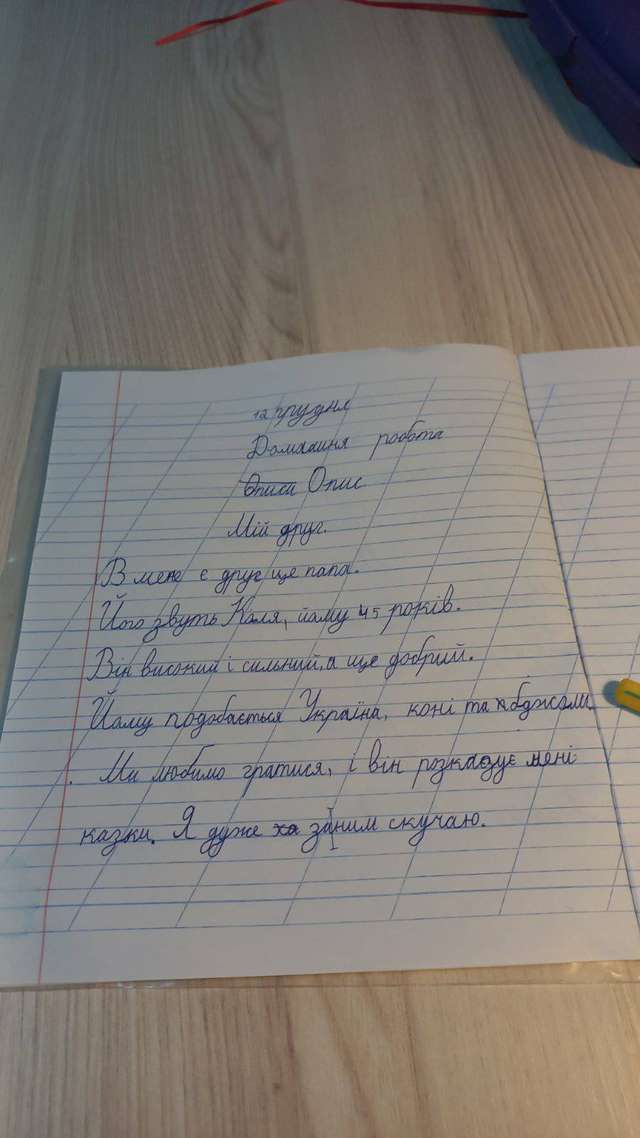 12 грудня
Домашня робота
Описи Опис
Мій друг.
В мене є друг це папа.
Його звуть Каля, йаму 45 років.
Він високий і сильний, а ще добрий.
Йаму подобається Україна, коні та бджоли.
Ми любимо гратися, і він розказує мені
казки. Я дуже за ним скучаю.